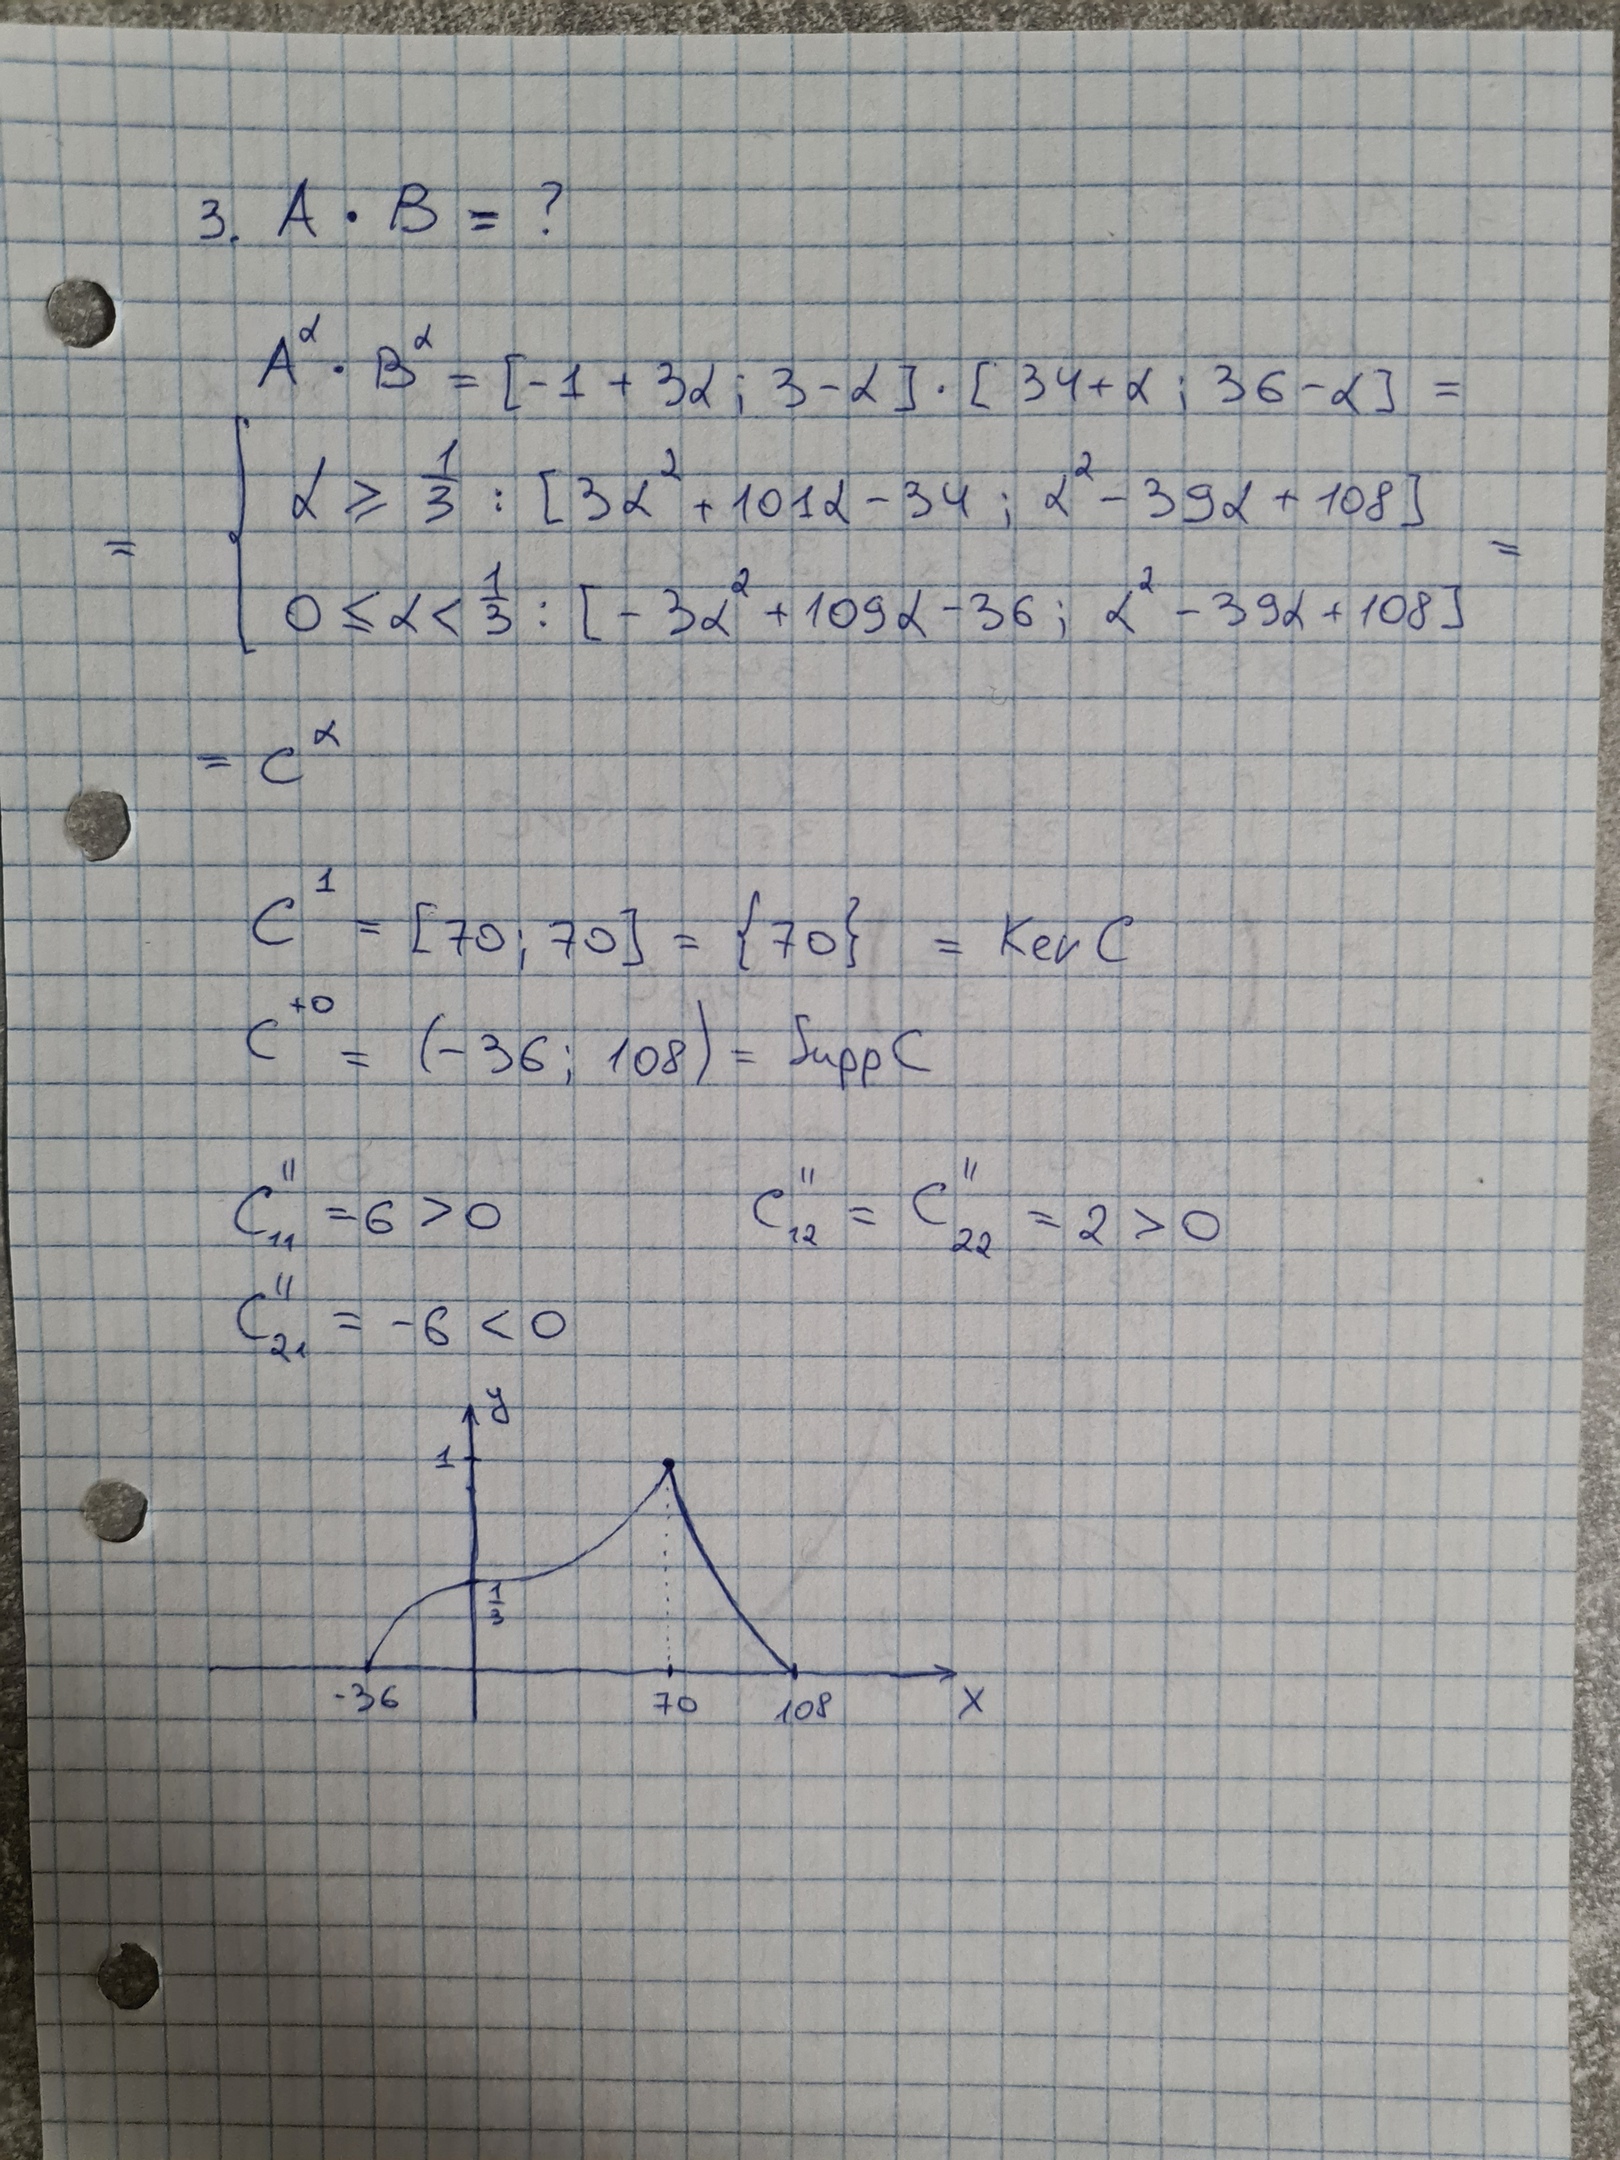 3. A · B = ?
A^α · B^α = [-1 + 3α; 3-α] · [34+α; 36-α] =
= { α ≥ 1/3 : [3α² + 101α - 34; α² - 39α + 108]
0 ≤ α < 1/3 : [-3α² + 109α - 36; α² - 39α + 108] =
= C^α
C^1 = [70; 70] = {70} = Ker C
C^+0 = (-36; 108) = Supp C
C''_11 = 6 > 0 C''_12 = C''_22 = 2 > 0
C''_21 = -6 < 0
y
1
1/3
-36 70 108 X